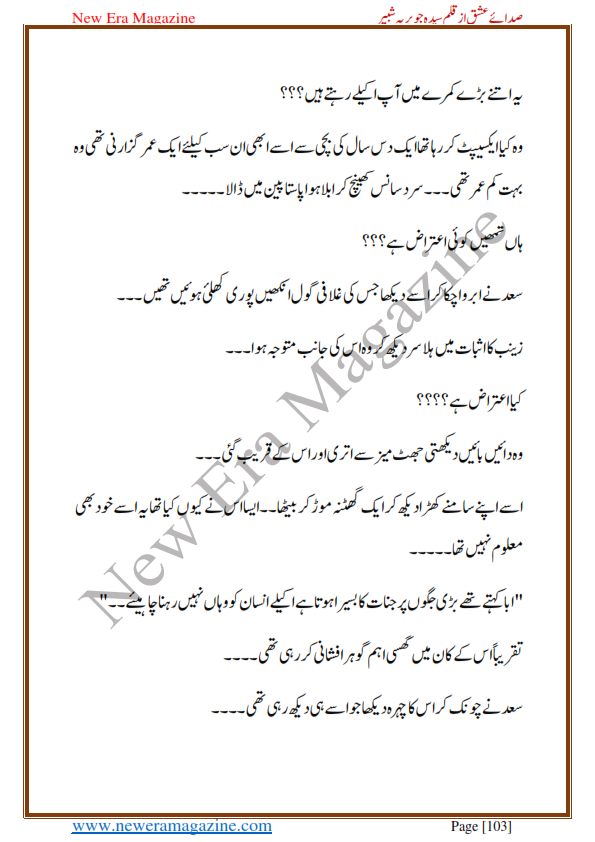 New Era Magazine صدائے عشق از قلم سیدہ جویریہ شبیر
یہ اتنے بڑے کمرے میں آپ اکیلے رہتے ہیں؟؟؟
وہ کیا ایکسیپٹ کر رہا تھا ایک دس سال کی بچی سے اسے ابھی ان سب کیلئے ایک عمر گزارنی تھی وہ
بہت کم عمر تھی۔۔۔ سرد سانس کھینچ کر ابلا ہوا پاستا پین میں ڈالا۔۔۔۔۔
ہاں تمھیں کوئی اعتراض ہے؟؟؟
سعد نے ابرو اچکا کر اسے دیکھا جس کی غلافی گول انکھیں پوری کھلئ ہوئیں تھیں۔۔۔
زینب کا اثبات میں ہلا سر دیکھ کر وہ اس کی جانب متوجہ ہوا۔۔۔
کیا اعتراض ہے؟؟؟؟
وہ دائیں بائیں دیکھتی جھٹ میز سے اتری اور اس کے قریب گئی۔۔۔
اسے اپنے سامنے کھڑا دیکھ کر ایک گھٹنہ موڑ کر بیٹھا۔۔ ایسا اس نے کیوں کیا تھا یہ اسے خود بھی
معلوم نہیں تھا۔۔۔۔۔
"ابا کہتے تھے بڑی جگوں پر جنات کا بسیرا ہوتا ہے اکیلے انسان کو وہاں نہیں رہنا چاہیئے۔۔"
تقریباً اس کے کان میں گھسی اہم گوہر افشانی کر رہی تھی۔۔۔۔
سعد نے چونک کر اس کا چہرہ دیکھا جو اسے ہی دیکھ رہی تھی۔۔۔۔
New Era Magazine
www.neweramagazine.com Page [103]